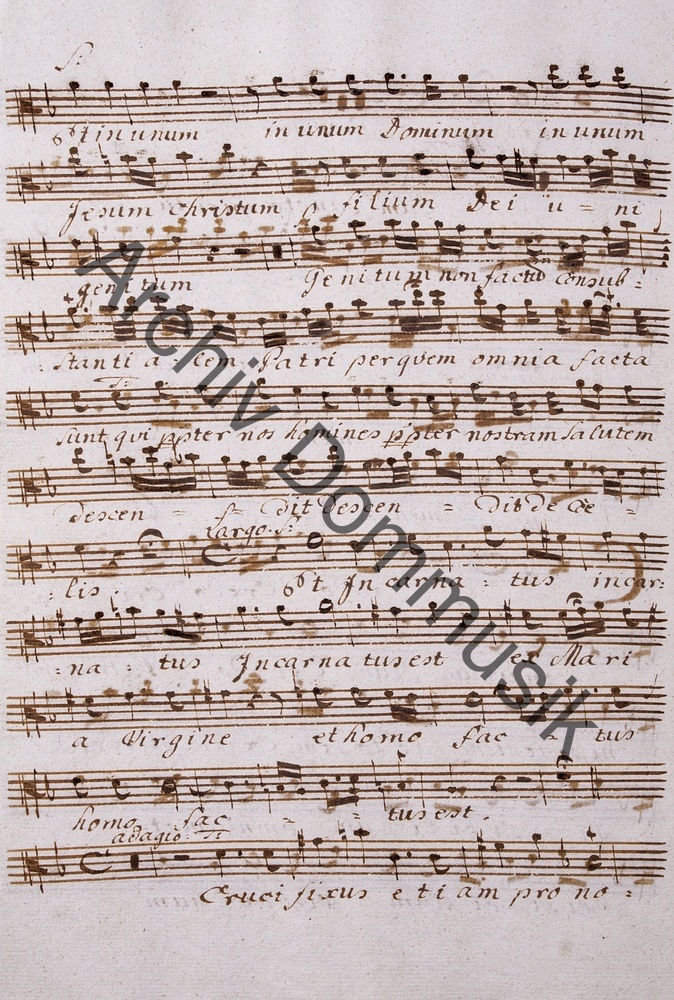 S:
Et in unum in unum Dominum in unum
Jesum Christum filium Dei u = ni
genitum Genitum non factū Consub =
stanti a lem Patri per qvem omnia facta
T:
sunt qvi ppter nos homines ppter nostram Salutem
descen = = dit descen = dit de Cœ =
Largo. S:
= lis. Et Incarna = tus incar =
= na = tus Incarnatus est ex Mari
a Virgine et homo fac = tus
homo fac = = tus est.
adagio T:
Crucifixus etiam pro no =
Archiv Dommusik